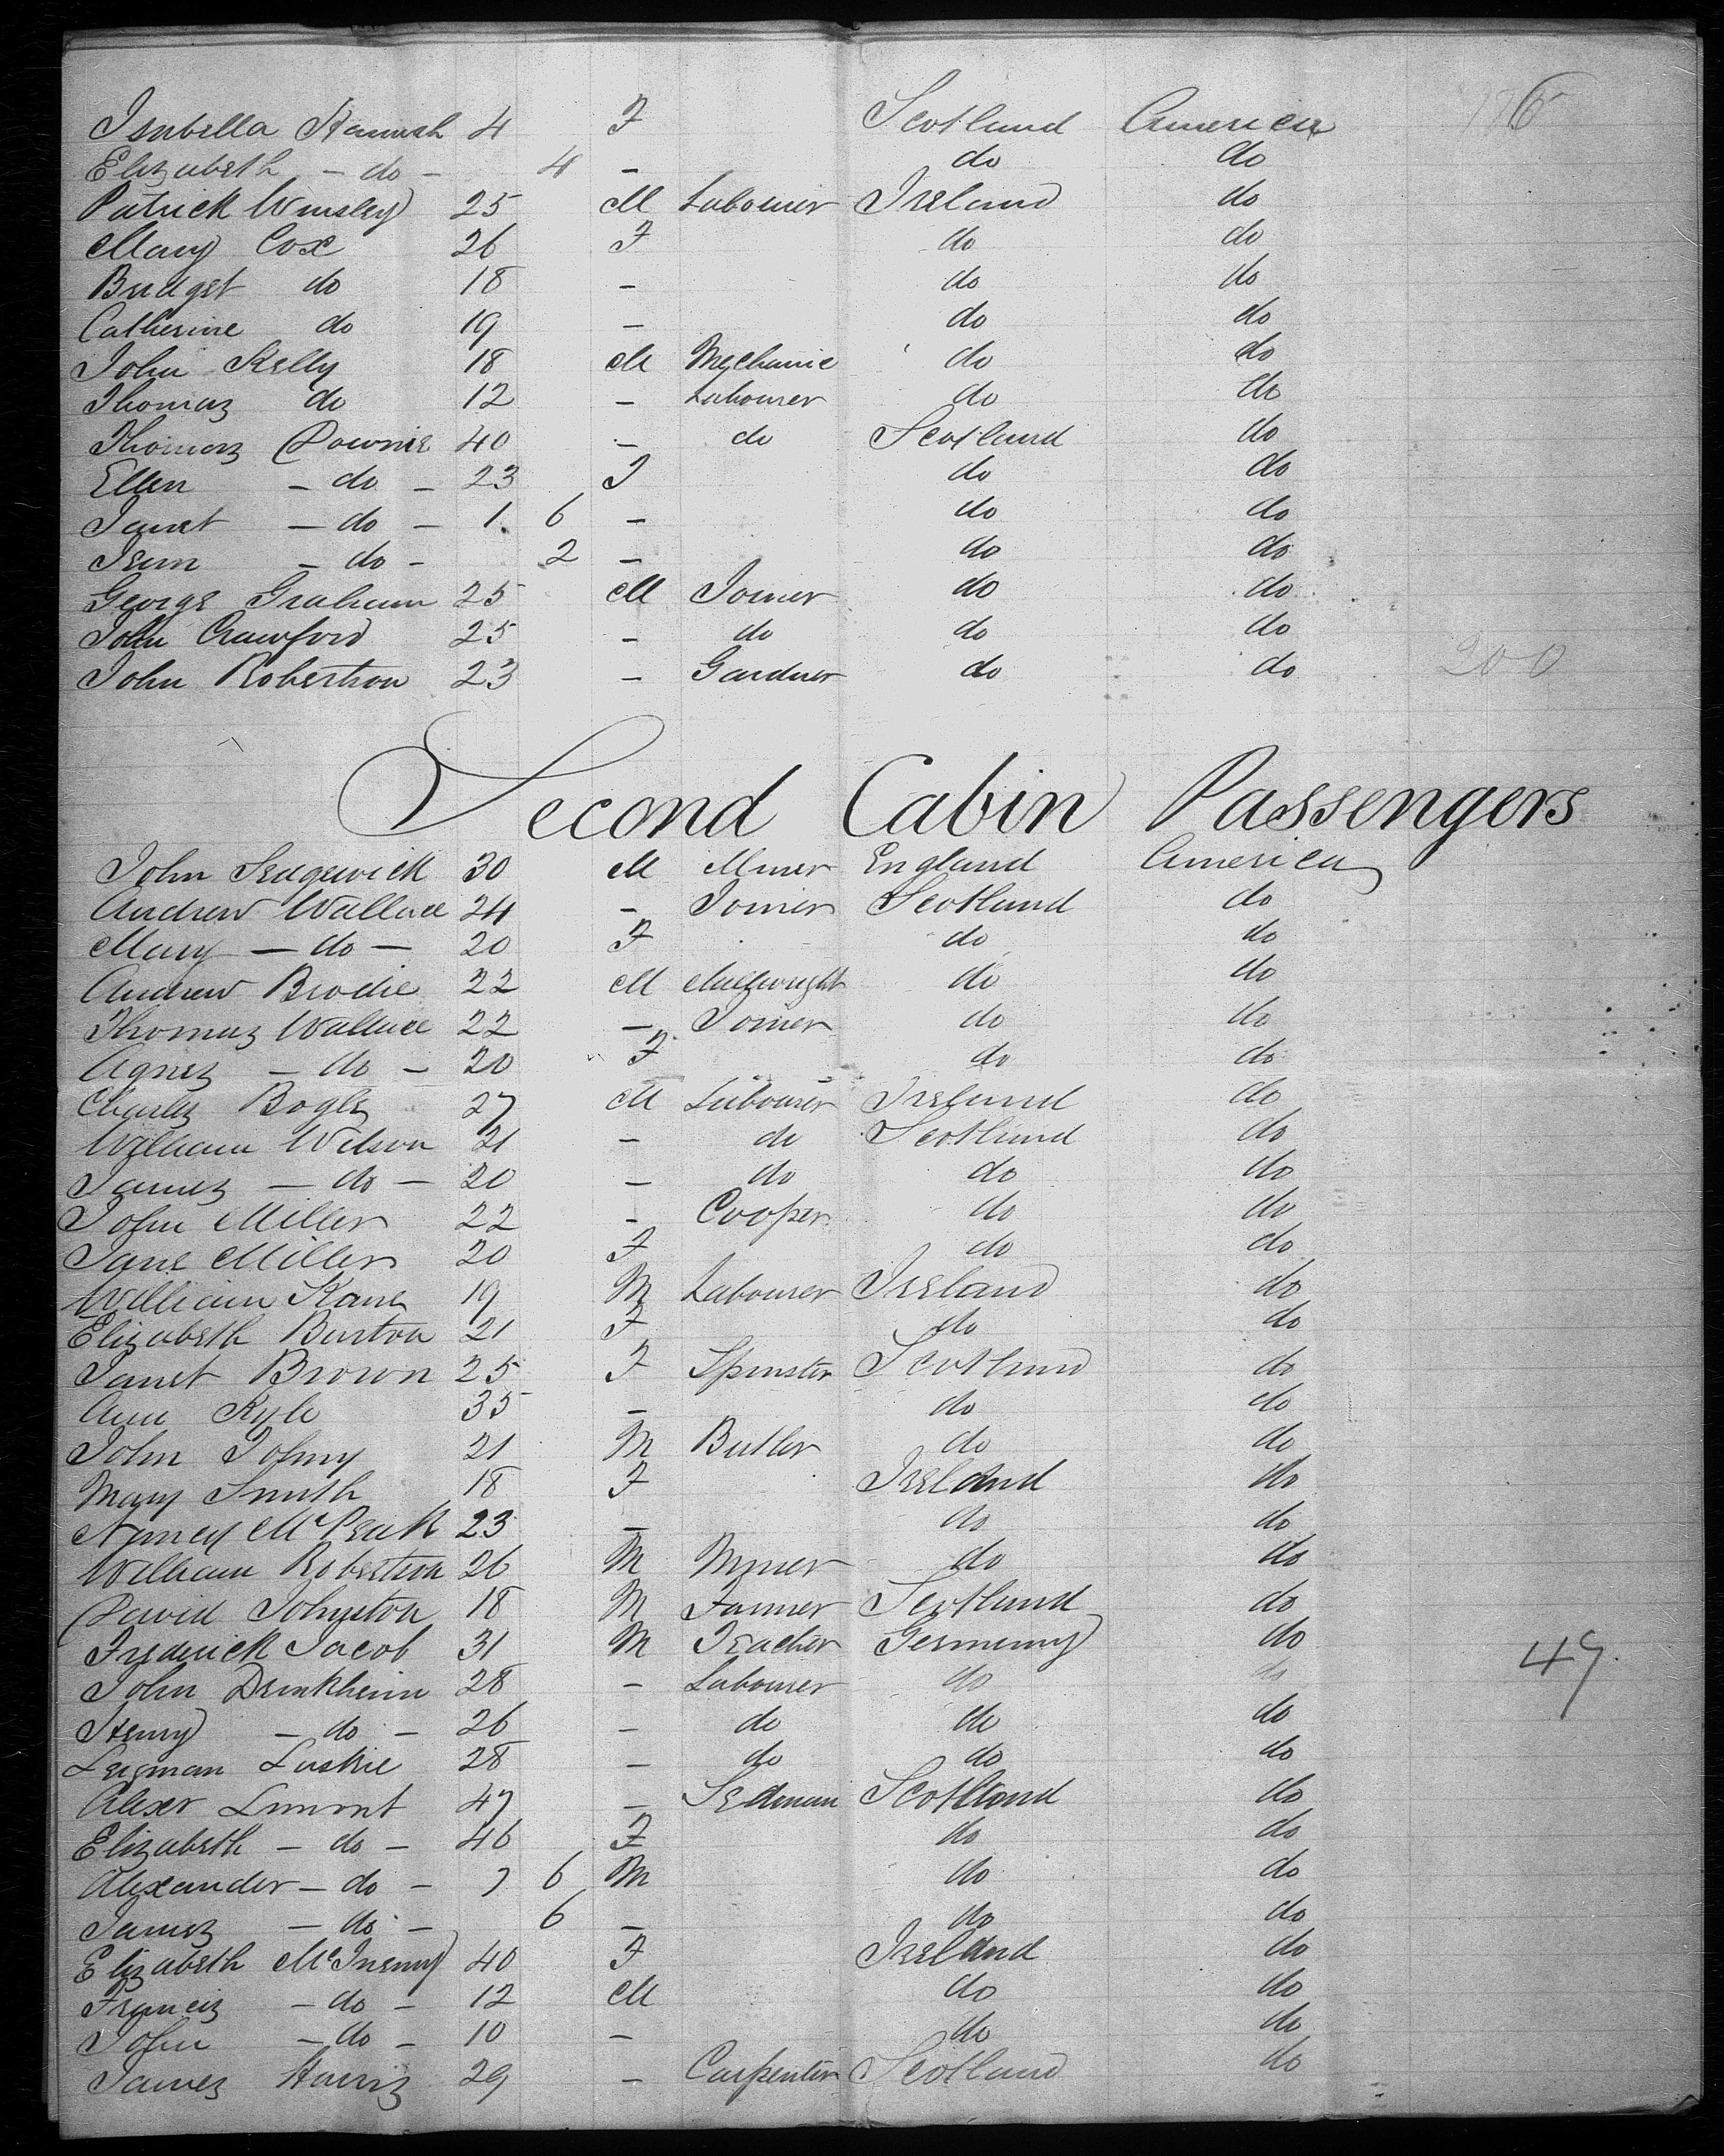 Isabella Hannah 4 F Scotland America 186
Elizabeth - do - 4 - do do
Patrick Winsley 25 M Labourer Ireland do
Mary Cox 26 F do do
Bridget do 18 - do do
Catherine do 19 - do do
John Kelly 18 M Mechanic do do
Thomas do 12 - Labourer do do
Thomas Downie 40 - do Scotland do
Ellen - do - 23 F do do
Janet - do - 1. 6 - do do
Jean - do - 2 - do do
George Graham 25 M Joiner do do
John Crawford 25 - do do do
John Robertson 23 - Gardner do do 200
Second Cabin Passengers
John Sedgewick 30 M Miner England America
Andrew Wallace 24 - Joiner Scotland do
Mary - do - 20 F do do
Andrew Brodie 22 M Millwright do do
Thomas Wallace 22 - Joiner do do
Agnes - do - 20 F do do
Charles Bogle 27 M Labourer Ireland do
William Wilson 21 - do Scotland do
James - do - 20 - do do do
John Miller 22 - Cooper do do
Jane Miller 20 F do do
William Kane 19 M Labourer Ireland do
Elizabeth Burton 21 F do do
Janet Brown 25 F Spinster Scotland do
Ann Kyle 35 - do do
John 21 M Butler do do
Mary Smith 18 F Ireland do
Nancy McPeak 23 - do do
William Robertson 26 M Miner do do
David Johnston 18 M Farmer Scotland do
Frederick Jacob 31 M Teacher Germenny do 49.
John Drinkheim 28 - Labourer do do
Henry - do - 26 - do do do
Luskie 28 - do do do
Alexr Limont 47 - Seaman Scotland do
Elizabeth - do - 46 F do do
Alexander - do - 7 6 M do do
James - do - 6 - do do
Elizabeth McInenny 40 F Ireland do
Francis - do - 12 M do do
John - do - 10 - do do
James Harris 29 - Carpenter Scotland do